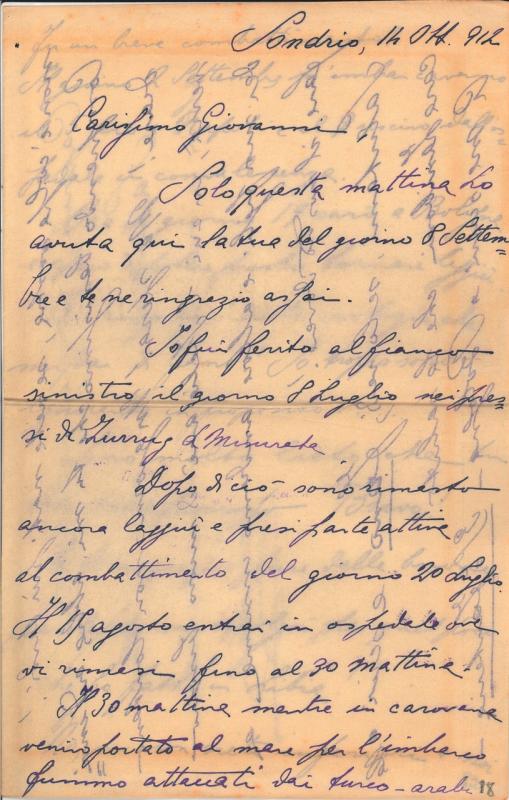 Sondrio, 14 Ott. 912
Carissimo Giovanni,
Solo questa mattina ho
avuta qui la tua del giorno 8 Settem=
bre e te ne ringrazio assai.
Io fui ferito al fianco
sinistro il giorno 8 Luglio nei pres=
si di Zurrug di Misurata
Dopo di ciò sono rimasto
ancora laggiù e presi parte attiva
al combattimento del giorno 20 Luglio
Il 15 agosto entrai in ospedale ove
vi rimasi fino al 30 mattina.
Il 30 mattina mentre in carovana
venivo portato al mare per l'imbarco
fummo attaccati dai turco-arabi
18